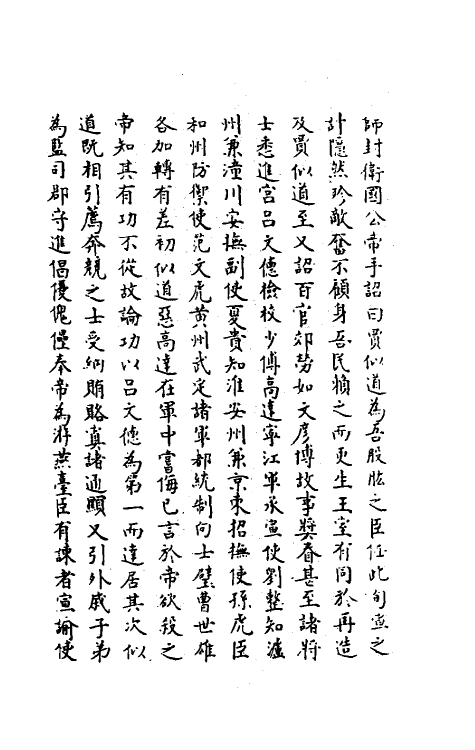 師封衛國公帝手詔曰賈似道為吾股肱之臣任此旬宣之
計隱然殄敵奮不顧身吾民賴之而更生王室有同於再造
及賈似道至又詔百官郊勞如文彦博故事獎眷甚至諸將
士悉進宮呂文德檢校少傅高達寧江軍承宣使劉整知瀘
州兼潼川安撫副使夏貴知淮安州兼京東招撫使孫虎臣
和州防禦使范文虎黄州武定諸軍都統制向士璧曹世雄
各加轉有差初似道惡高達在軍中嘗侮已言於帝欲殺之
帝知其有功不從故論功以呂文德為第一而達居其次似
道既相引薦奔競之士受納賄賂寘諸通顯又引外戚子弟
為監司郡守進倡優傀儡奉帝為游燕臺臣有諫者宣諭使